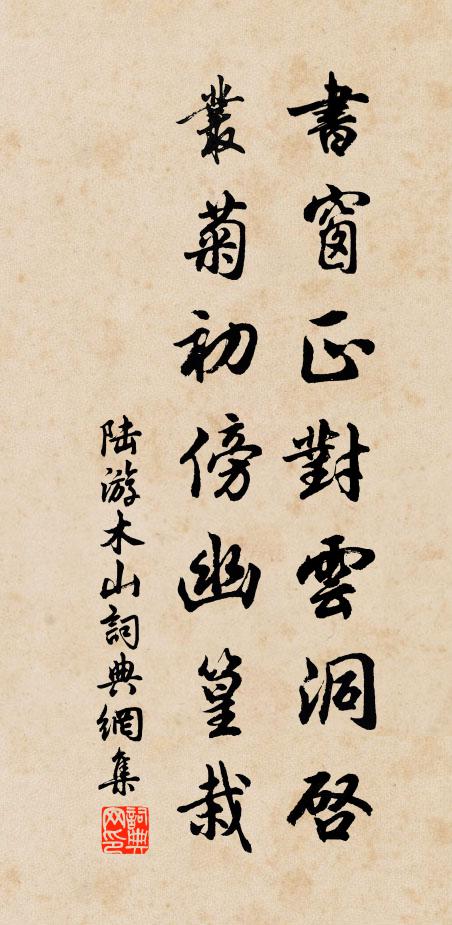 書窗正對雲洞啓
叢菊初傍幽篁栽
陆游木山詞典網集
詞典網印